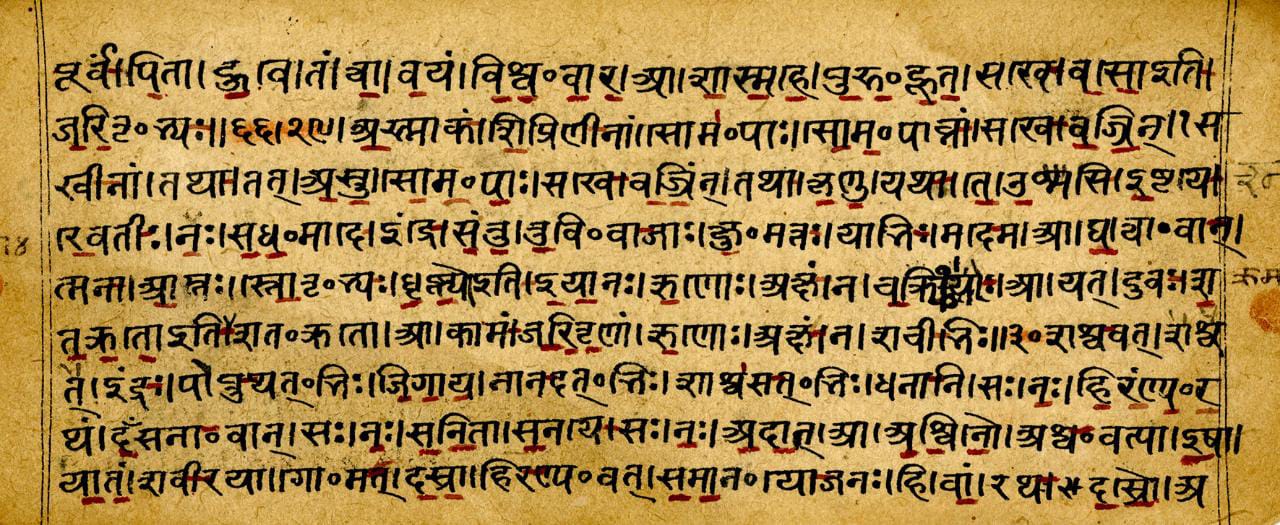 पूर्वं।पिता।हुवे।तं।त्वा।वयं।विश्व॰वार।आ।शास्महे।पुरु॰हूत।सखे।वसोऽति।
जरितृ॰भ्यः॥६६।२९।अस्माकं।शिप्रिणीनां।सोम॰पाः।सोम॰पाव्नां।सखे।वज्रिन्।स
खीनां।तथा।तत्।अस्तु।सोम॰पाः।सखे।वज्रिन्।तथा।कृणु।यथा।ते।उश्मसि।इष्टये।
रेवतीः।नः।सध॰मादे।इंद्रे।संतु।तुवि॰वाजाः।क्षु॰मंतः।याभिः।मदेम।आ।घ।त्वा॰वान्।
त्मना।आप्तः।स्तोतृ॰भ्यः।धृष्णोऽति।इयानः।ऋणोः।अक्षं।न।चक्र्योः।आ।यत्।दुवः।श
तक्रतोऽति शत॰क्रतो।आ।कामं।जरितॄणां।ऋणोः।अक्षं।न।शचीभिः॥३०शश्वत्।शश्व
त्।इंद्रः।पोप्रुथत्॰भिः।जिगाय।नानदत्॰भिः।शाश्वसत्॰भिः।धनानि।सः।नः।हिरण्य॰र
थं।दँसना॰वान्।सः।नः।सनिता।सनये।सः।नः।अदात्।आ।अश्विनौ।अश्व॰वत्या।इषा।
यातं।शवीरया।गो॰मत्।दस्रा।हिरण्य॰वत्।समान॰योजनः।हि।वां।रथः।दस्रौ।अ